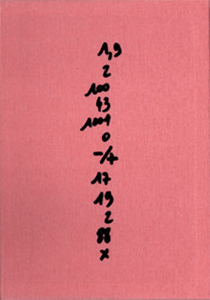 1,9
2
100
43
1001
0
-/+
17
19
2
88
x